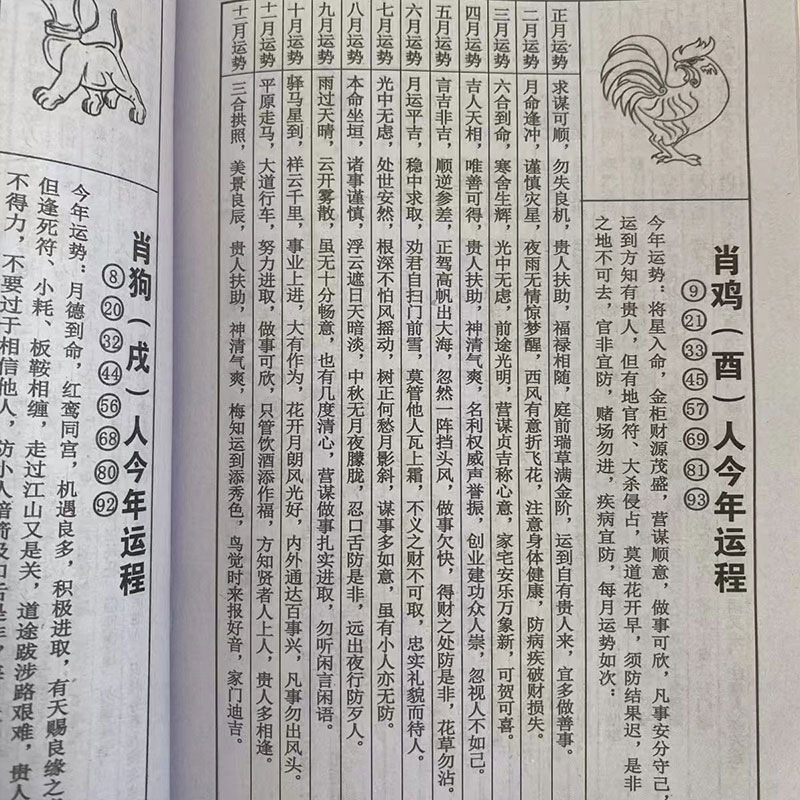 肖鸡(酉)人今年运程
⑨㉑㉝㊺57 69 81 93
今年运势:将星入命,金柜财源茂盛,营谋顺意,做事可欣,凡事安分守己,
运到方知有贵人,但有地官符、大杀侵占,莫道花开早,须防结果迟,是非
之地不可去,官非宜防,赌场勿进,疾病宜防,每月运势如次:
正月运势 求谋可顺,勿失良机,贵人扶助,福禄相随,庭前瑞草满金阶,运到自有贵人来,宜多做善事。
二月运势 月命逢冲,谨慎灾星,夜雨无情惊梦醒,西风有意折飞花,注意身体健康,防病疾破财损失。
三月运势 六合到命,寒舍生辉,光中无虑,前途光明,营谋贞吉称心意,家宅安乐万象新,可贺可喜。
四月运势 吉人天相,唯善可得,贵人扶助,神清气爽,名利权威声誉振,创业建功众人崇,忽视人不如己。
五月运势 言吉非吉,顺逆参差,正驾高帆出大海,忽然一阵挡头风,做事欠快,得财之处防是非,花草勿沾。
六月运势 月运平吉,稳中求取,劝君自扫门前雪,莫管他人瓦上霜,不义之财不可取,忠实礼貌而待人。
七月运势 光中无虑,处世安然,根深不怕风摇动,树正何愁月影斜,谋事多如意,虽有小人亦无防。
八月运势 本命坐垣,诸事谨慎,浮云遮日天暗淡,中秋无月夜朦胧,忍口舌防是非,远出夜行防歹人。
九月运势 雨过天晴,云开雾散,虽无十分畅意,也有几度清心,营谋做事扎实进取,勿听闲言闲语。
十月运势 驿马星到,祥云千里,事业上进,大有作为,花开月朗风光好,内外通达百事兴,凡事勿出风头。
十一月运势 平原走马,大道行车,努力进取,做事可欣,只管饮酒添作福,方知贤者人上人,贵人多相逢。
十二月运势 三合拱照,美景良辰,贵人扶助,神清气爽,梅知运到添秀色,鸟觉时来报好音,家门迪吉。
肖狗(戌)人今年运程
⑧⑳㉜㊹56 68 80 92
今年运势:月德到命,红鸾同宫,机遇良多,积极进取,有天赐良缘之
但逢死符、小耗、板鞍相缠,走过江山又是关,道途跋涉路艰难,贵人
不得力,不要过于相信他人,防小人暗箭及口舌是非,